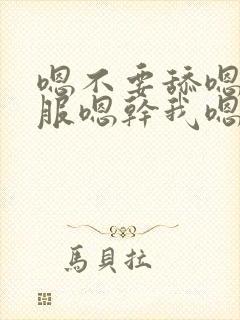 嗯不要舔嗯
服嗯幹我嗯
馬貝拉